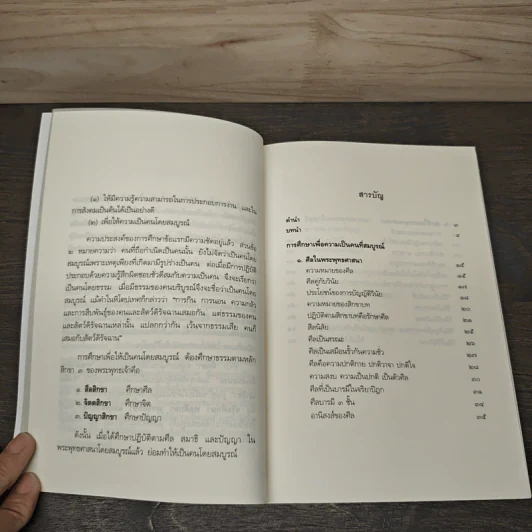 (๑) ให้มีความรู้ความสามารถในการประกอบการงาน และใน
การสังคมเป็นต้นได้เป็นอย่างดี
(๒) เพื่อให้ความเป็นคนโดยสมบูรณ์
ความประสงค์ของการศึกษาข้อแรกมีความชัดอยู่แล้ว ส่วนข้อ
๒ หมายความว่า คนที่ถือกำเนิดเป็นคนนั้น ยังไม่จัดว่าเป็นคนโดย
สมบูรณ์เพราะเหตุเพียงที่เกิดมามีรูปร่างเป็นคน ต่อเมื่อมีการปฏิบัติ
ประกอบด้วยความรู้สึกผิดชอบชั่วดีสมกับความเป็นคน จึงจะเรียกว่า
เป็นคนโดยธรรม เมื่อมีธรรมของคนบริบูรณ์จึงจะชื่อว่าเป็นคนโดย
สมบูรณ์ แม้คำในหิโตปเทศก็กล่าวว่า "การกิน การนอน ความกลัว
และการสืบพันธุ์ของคนและสัตว์ดิรัจฉานเสมอกัน แต่ธรรมของคน
และสัตว์ดิรัจฉานเหล่านั้น แปลกกว่ากัน เว้นจากธรรมเสีย คนก็
เสมอกับสัตว์ดิรัจฉาน"
การศึกษาเพื่อให้เป็นคนโดยสมบูรณ์ ต้องศึกษาธรรมตามหลัก
สิกขา ๓ ของพระพุทธเจ้าคือ
๑. สีลสิกขา ศึกษาศีล
๒. จิตตสิกขา ศึกษาจิต
๓. ปัญญาสิกขา ศึกษาปัญญา
ดังนั้น เมื่อได้ศึกษาปฏิบัติตามศีล สมาธิ และปัญญา ใน
พระพุทธศาสนาโดยสมบูรณ์แล้ว ย่อมทำให้เป็นคนโดยสมบูรณ์
สารบัญ
คำนำ ๓
บทนำ ๘
การศึกษาเพื่อความเป็นคนที่สมบูรณ์
๑. ศีลในพระพุทธศาสนา ๑๕
ความหมายของศีล ๑๕
ศีลคู่กับวินัย
ประโยชน์ของการบัญญัติวินัย
ความหมายของสิกขาบท
ปฏิบัติตามสิกขาบทคือรักษาศีล
สีลนิสัย ๒๕
ศีลเป็นสรณะ ๒๖
ศีลเป็นเสมือนรั้วกันความชั่ว ๒๗
ศีลคือความปกติกาย ปกติวาจา ปกติใจ ๒๘
ความสงบ ความเป็นปกติ เป็นตัวศีล
ศีลที่เป็นบารมีในจริยาปิฎก ๓๐
ศีลบารมี ๓ ชั้น ๓๔
อานิสงส์ของศีล ๓๕